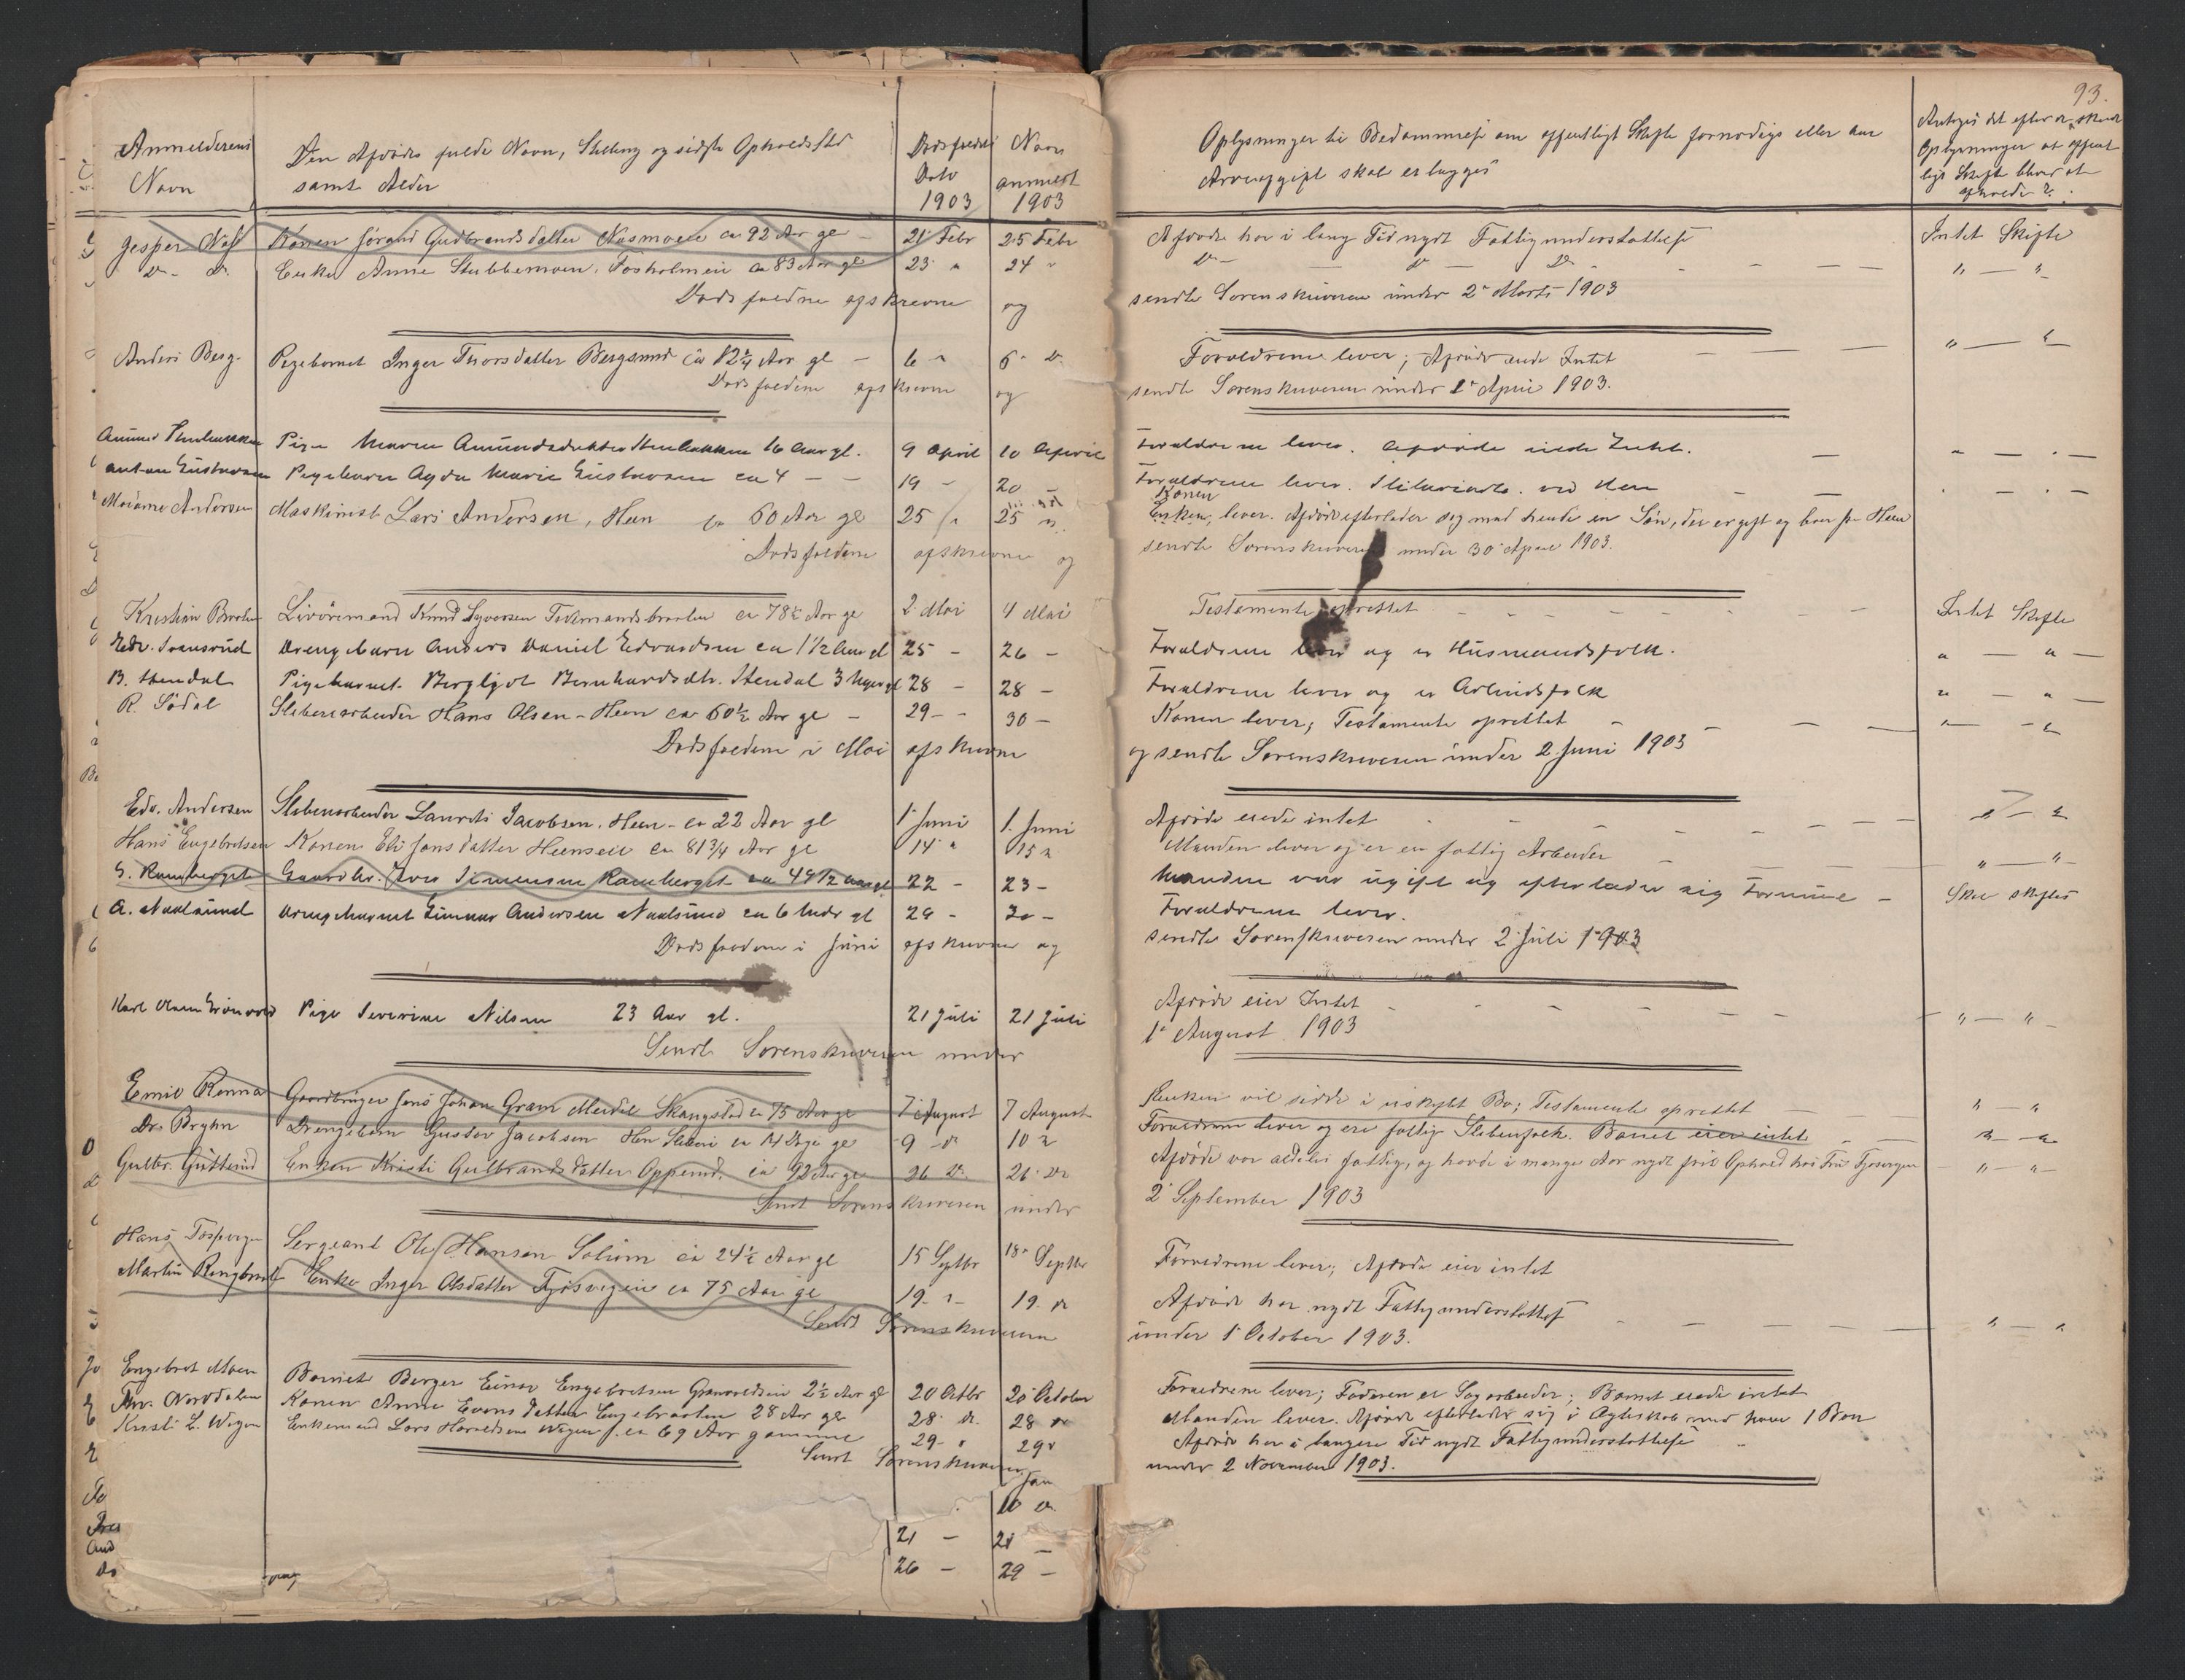 93.
Anmelderens Navn | Den Afdødes fulde Navn, Stilling og sidste Opholdssted samt Alder | Dødsfaldets Dato 1903 | Naar anmeldt 1903 | Oplysninger til Bedømmelse om offentligt Skifte fornødiges eller om Arveafgift skal erlægges | Antages det efter de Oplysninger at offentligt Skifte bliver at afholde?
Jesper | Konen Jørand Gudbrandsdatter Næsmoen ca 92 Aar gl | 21 Febr | 25 Febr | Afdøde har i lang Tid nydt Fattigunderstøttelse | Intet Skifte
Do - Do | Enke Anne Stubbemoen, Fosholmen ca 83 Aar gl | 23 " | 24 " | Do — Do — Do | " — "
Dødsfaldene afskrevne og sendte Sorenskriveren under 2 Marts 1903
Anders Berg | Pigebarnet Inger Thorsdatter Bergsund ca 12¼ Aar gl | 6 " | 6 " | Forældrene lever; Afdøde eiede Intet | " — "
Dødsfaldene afskrevne og sendte Sorenskriveren under 1 April 1903.
Amund | Pige Maren Amundsdatter 16 Aar gl. | 9 April | 10 April | Forældrene lever. Afdøde eiede Intet. | " — " —
Anton Gustavsen | Pigebarn Agda Marie Gustavsen ca 4 — — | 19 - | 20 - | Forældrene lever. ved Hen | " — " —
Andersen | Maskinist Lars Andersen, Hen ca 60 Aar gl | 25 " | 25 " | Konen Enken, lever. Afdøde efterlader sig med hende en Søn, der er gift og bor paa Hen
Dødsfaldene afskrevne og sendte Sorenskriveren under 30 April 1903.
Kristian Braaten | Livøremand Knud Syversen Tickmandsbraaten ca 78½ Aar gl | 2 Mai | 4 Mai | Testamente oprettet | Intet Skifte
Edv. | Drengebarn Anders Daniel Edvardsen ca 1 1/2 Aar gl | 25 - | 26 - | Forældrene lever og er Husmandsfolk. | " — " —
B. Stendal | Pigebarnet Bergljot Bernhardsdtr. Stendal 3 Uger gl | 28 - | 28 - | Forældrene lever og er Arbeidsfolk | " — " —
R. Sødal | Sliberiarbeider Hans Olsen - Hen ca 60½ Aar gl | 29 - | 30 - | Konen lever; Testamente oprettet | " — "
Dødsfaldene i Mai afskrevne og sendte Sorenskriveren under 2 Juni 1903
Edv. Andersen | Sliberiarbeider Laurits Jacobsen, Hen - ca 22 Aar gl | 1 Juni | 1. Juni | Afdøde eiede intet | " — "
Hans Engebretsen | Konen Eli Jonsdatter Heenseie ca 81 3/4 Aar gl | 14 " | 15 " | Manden lever og er en fattig Arbeider | " — "
S. Ramberget | Gaardbr. Iver Simensen Ramberget ca 49 1/2 Aar gl | 22 - | 23 - | Manden var ugift og efterlader sig Formue - | Skal skiftes
A. Naalsund | Drengebarnet Gunnar Andersen Naalsund ca 6 Mdr gl | 29 - | 30 - | Forældrene lever.
Dødsfaldene i Juni afskrevne og sendte Sorenskriveren under 2 Juli 1903
Karl Olsen Grønvold | Pige Severine Nilsen 23 Aar gl. | 21 Juli | 21 Juli | Afdøde eier Intet | " — "
Sendt Sorenskriveren under 1 August 1903
Emil Renna | Gaardbruger Jens Johan Gram Meidel Skangstad ca 75 Aar gl | 7 August | 7 August | Enken vil sidde i uskiftet Bo; Testamente oprettet | " — "
Dr. Bryhn | Drengebarn Gustav Jacobsen Hen Sliberi ca 14 Dage gl | 9 " | 10 " | Forældrene lever og ere fattig Slibenfolk. Barnet eier intet | " — "
Gulbr. Guttrud | Enken Kristi Gulbrandsdatter Oppend. ca 92 Aar gl | 26 Do. | 26 Do | Afdøde var aldeles fattig, og havde i mange Aar nydt frit Ophold hos | " — "
Sendt Sorenskriveren under 2 September 1903
Hans | Sergeant Ole Hansen Solum ca 24½ Aar gl | 15 Septbr | 18 Septbr | Forældrene lever; Afdøde eier intet
Martin | Enke Inger Olsdatter ca 75 Aar gl | 19 " | 19 " | Afdøde har nydt Fattigunderstøttelse | " — "
Sendt Sorenskriveren under 1 October 1903.
Engebret Moen | Barnet Berger Einar Engebretsen 2½ Aar gl | 20 Octbr | 20 October | Forældrene lever; Faderen er Sagarbeider; Barnet eiede intet
Thv. Norddalen | Konen Anne Evensdatter Engebraaten 28 Aar gl | 28 " | 28 " | Manden lever. Afdøde efterlader sig i Ægteskab med ham 1 Barn
Kristi L. Wågen | Enkemand Lars Haraldsen Wågen ca 69 Aar gammel | 29 " | 29 " | Afdøde har i længere Tid nydt Fattigunderstøttelse
Sendt Sorenskriveren under 2 November 1903.
Jan
10 "
21 — | 21 —
26 — | 29 —